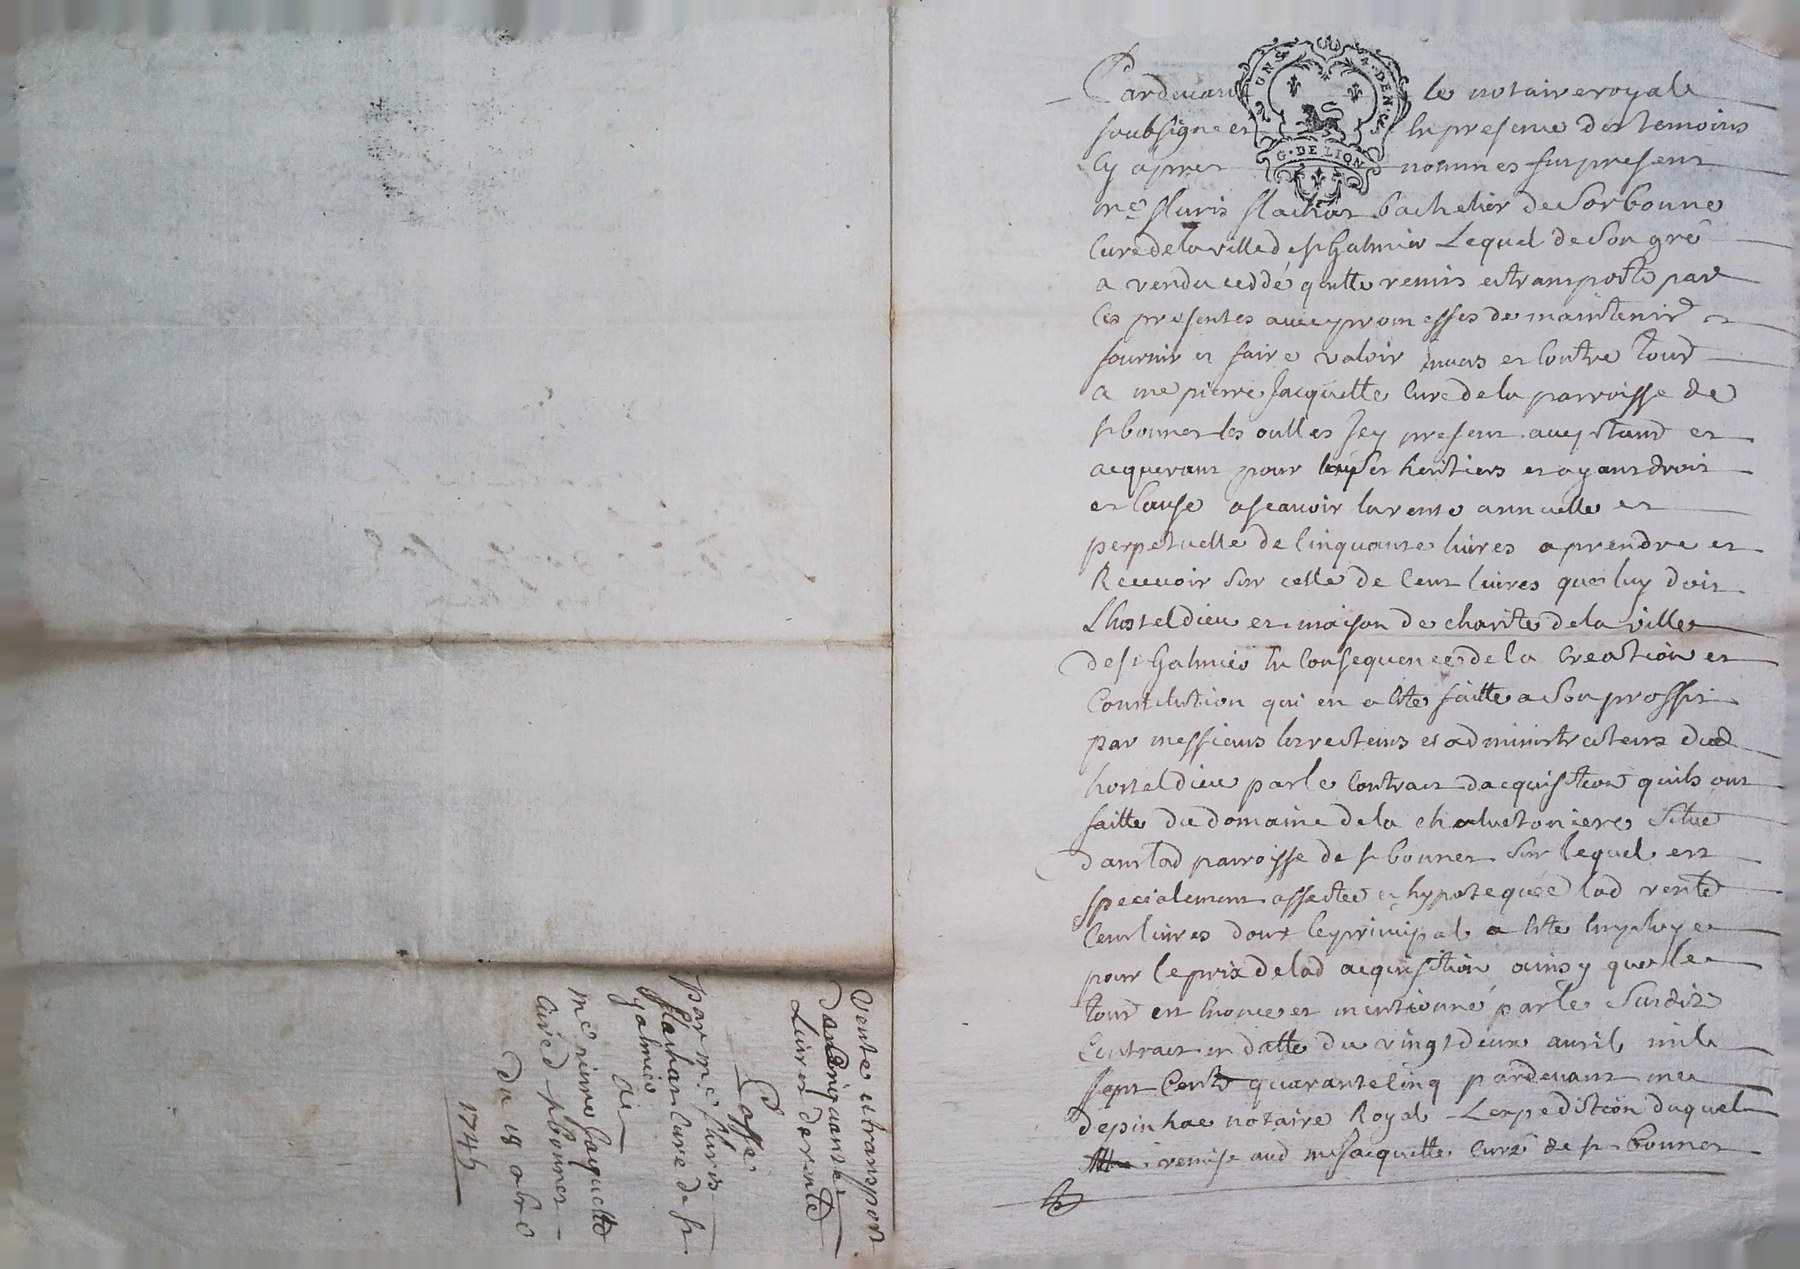 Pardevant le notaire royale
soubsigne et en presence des temoins
cy apres nommes fut present
me fluris flachat bachelier de Sorbonne
curé de la ville de st galmier Lequel de Son gré
a vendu ceddé quitte remis et transporté par
ces presentes avec promesses de maintenir et
fournir et faire valoir envers et contre tous
a me pierre Jacquette curé de la parroisse de
st bonnet les oulles Jcy present acceptant et
acquerant pour luy ses heritiers et ayant droit
et cause a scavoir la rente annuelle et
perpetuelle de cinquante livres a prendre et
Recevoir Sur celle de cent livres que luy doit
Lhosteldieu et maison de charité de la ville
de st galmier en consequence de la creation et
constitution qui en a été faitte a Son proffit
par messieurs les recteurs et administrateurs dud
hosteldieu par le contract dacquisition quils ont
faitte du domaine de la Situé
dans lad parroisse de st bonnet Sur lequel est
specialement affectée et hypotequée lad rente
cent livres dont le principal a été employer
pour le prix de lad acquisition ainsy que le
tout est enoncé et mentionné par le Susdit
Contract en datte du vingt deux avril mil
sept cents quarante cinq pardevant me
depinhac notaire Royal Lexpedition duquel
remise aud me Jacquette curé de st bonnet
vente et transport
de cinquante
Livres de rente
Passé
par me fluris
flachat curé de st
galmier
a
me pierre Jacquette
curé d st bonnet
du 18 abre
1745
G. DE LION